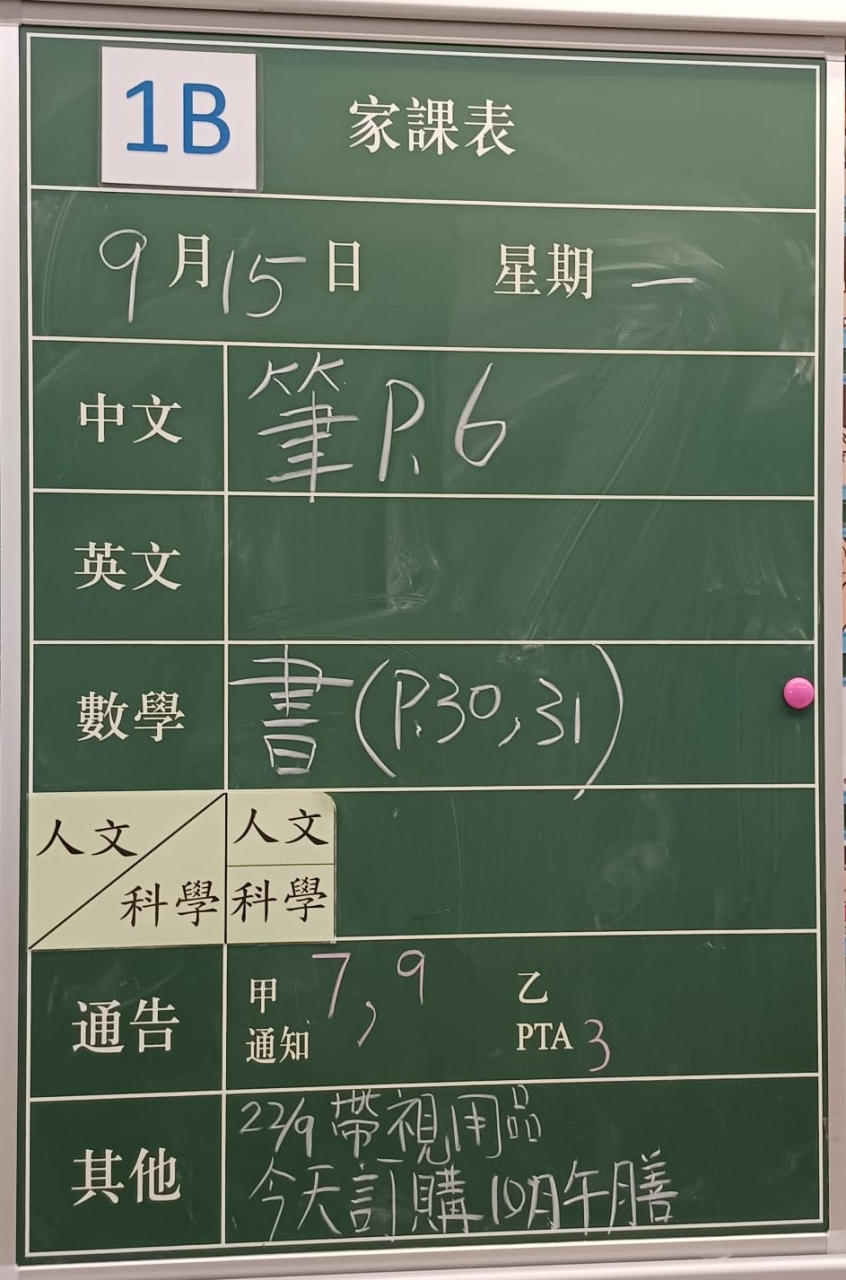 1B 家課表
9月15日 星期一
中文 筆 P.6
英文
數學 書(P.30,31)
人文 人文
科學 科學
通告 甲 7,9 乙
通知 PTA 3
其他 22/9 帶視用品
今天訂購10月午膳